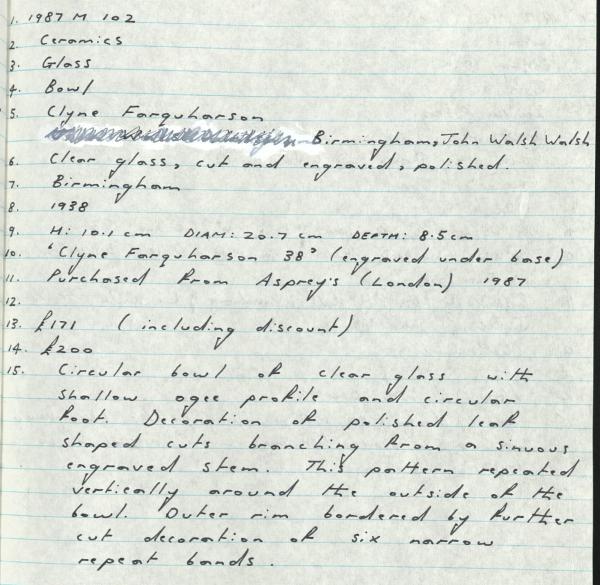 1. 1987 M 102
2. Ceramics
3. Glass
4. Bowl
5. Clyne Farquharson
Birmingham, John Walsh Walsh
6. Clear glass, cut and engraved, polished.
7. Birmingham
8. 1938
9. H: 10.1 cm DIAM: 20.7 cm DEPTH: 8.5 cm
10. 'Clyne Farquharson 38' (engraved under base)
11. Purchased from Asprey's (London) 1987
12.
13. £171 (including discount)
14. £200
15. Circular bowl of clear glass with
shallow ogee profile and circular
foot. Decoration of polished leaf
shaped cuts branching from a sinuous
engraved stem. This pattern repeated
vertically around the outside of the
bowl. Outer rim bordered by further
cut decoration of six narrow
repeat bands.